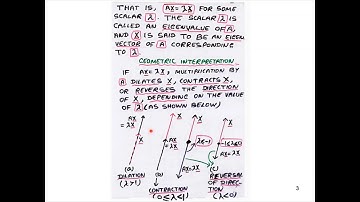 THAT IS, AX=λX FOR SOME
SCALAR λ. THE SCALAR λ IS
CALLED AN EIGENVALUE OF A,
AND X IS SAID TO BE AN EIGEN
VECTOR OF A CORRESPONDING
TO λ.
GEOMETRIC INTERPRETATION
IF AX=λX, MULTIPLICATION BY
A DILATES X, CONTRACTS X,
OR REVERSES THE DIRECTION
OF X, DEPENDING ON THE VALUE
OF λ (AS SHOWN BELOW)
AX
=λX
X
X
AX
=λX
X
λ<-1
AX=λX
X
-1≤λ≤0
AX=λX
(a)
DILATION
(λ>1)
(b)
CONTRACTION
(0≤λ<1)
(c)
REVERSAL
OF DIREC-
TION
(λ<0)
3